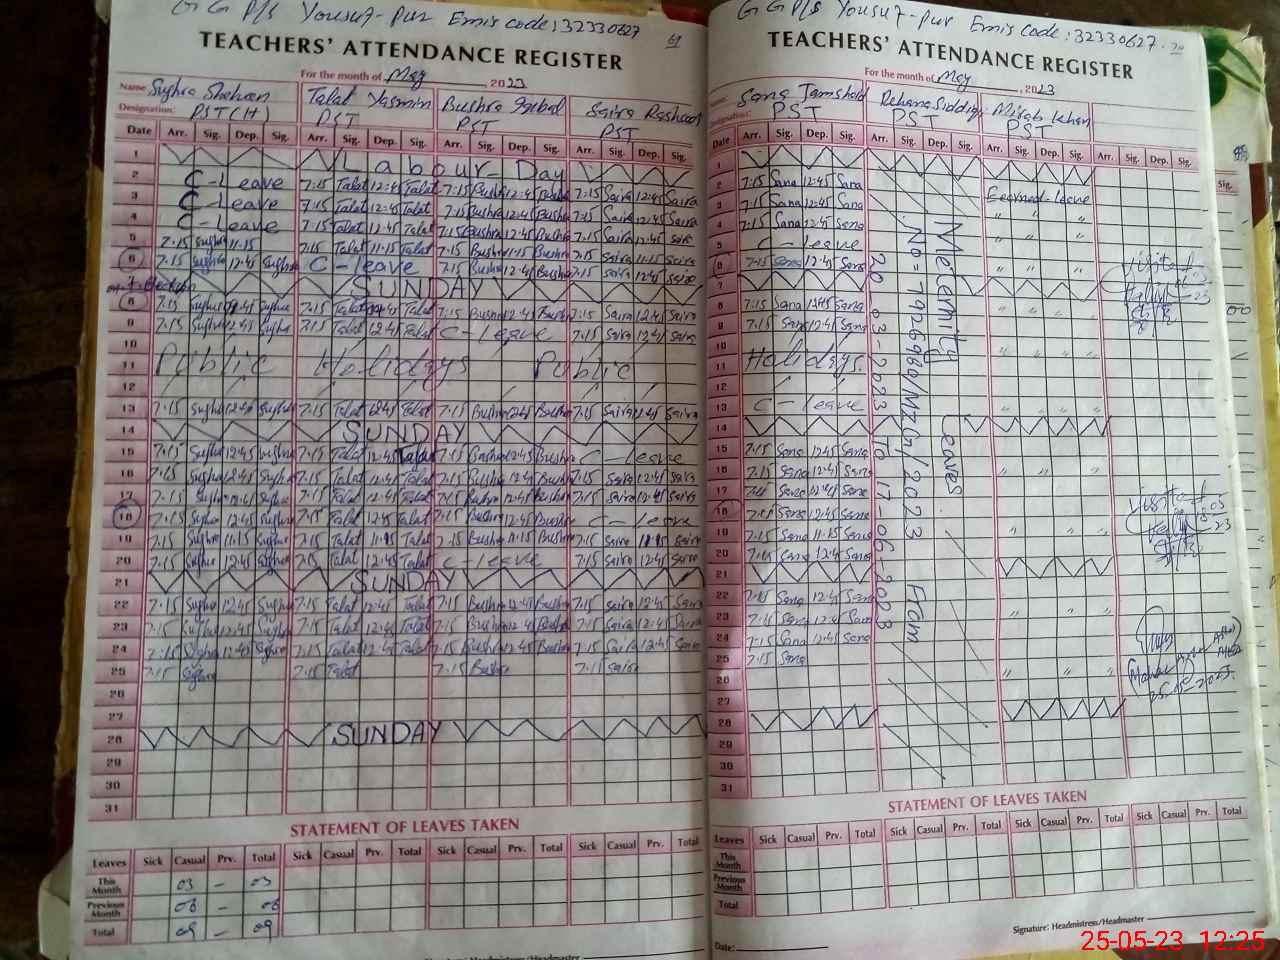 G G P/s Yousuf-pur Emis code: 32330627
TEACHERS' ATTENDANCE REGISTER
For the month of May, 2023
Name Sughra Shaheen Talat Yasmin Bushra Iqbal Saira Rasheed
Designation: PST(H) PST PST PST
Date Arr. Sig. Dep. Sig. Arr. Sig. Dep. Sig. Arr. Sig. Dep. Sig. Arr. Sig. Dep. Sig.
1 Labour Day
2 C-Leave 7:15 Talat 12:45 Talat 7:15 Bushra 12:45 Bushra 7:15 Saira 12:45 Saira
3 C-Leave 7:15 Talat 12:45 Talat 7:15 Bushra 12:45 Bushra 7:15 Saira 12:45 Saira
4 C-Leave 7:15 Talat 12:45 Talat 7:15 Bushra 12:45 Bushra 7:15 Saira 12:45 Saira
5 7:15 Sughra 11:15 7:15 Talat 11:15 Talat 7:15 Bushra 11:15 Bushra 7:15 Saira 11:15 Saira
6 7:15 Sughra 12:45 Sughra C-leave 7:15 Bushra 12:45 Bushra 7:15 Saira 12:45 Saira
7 SUNDAY
8 7:15 Sughra 12:45 Sughra 7:15 Talat Talat 7:15 Bushra 12:45 Bushra 7:15 Saira 12:45 Saira
9 7:15 Sughra 12:45 Sughra 7:15 Talat 12:45 Talat C-Leave 7:15 Saira 12:45 Saira
10
11 Public Holidays Public
12
13 7:15 Sughra 12:45 Sughra 7:15 Talat 12:45 Talat 7:15 Bushra 12:45 Bushra 7:15 Saira 12:45 Saira
14 SUNDAY
15 7:15 Sughra 12:45 Sughra 7:15 Talat 12:45 Talat 7:15 Bushra 12:45 Bushra C-leave
16 7:15 Sughra 12:45 Sughra 7:15 Talat 12:45 Talat 7:15 Bushra 12:45 Bushra 7:15 Saira 12:45 Saira
17 7:15 Sughra 12:45 Sughra 7:15 Talat 12:45 Talat 7:15 Bushra 12:45 Bushra 7:15 Saira 12:45 Saira
18 7:15 Sughra 12:45 Sughra 7:15 Talat 12:45 Talat 7:15 Bushra 12:45 Bushra C-leave
19 7:15 Sughra 11:15 Sughra 7:15 Talat 11:15 Talat 7:15 Bushra 11:15 Bushra 7:15 Saira 11:15 Saira
20 7:15 Sughra 12:45 Sughra 7:15 Talat 12:45 Talat C-leave 7:15 Saira 12:45 Saira
21 SUNDAY
22 7:15 Sughra 12:45 Sughra 7:15 Talat 12:45 Talat 7:15 Bushra 12:45 Bushra 7:15 Saira 12:45 Saira
23 7:15 Sughra 12:45 Sughra 7:15 Talat 12:45 Talat 7:15 Bushra 12:45 Bushra 7:15 Saira 12:45 Saira
24 7:15 Sughra 12:45 Sughra 7:15 Talat 12:45 Talat 7:15 Bushra 12:45 Bushra 7:15 Saira 12:45 Saira
25 7:15 Sughra 7:15 Talat 7:15 Bushra 7:15 Saira
26
27
28 SUNDAY
29
30
31
STATEMENT OF LEAVES TAKEN
Leaves Sick Casual Prv. Total Sick Casual Prv. Total Sick Casual Prv. Total Sick Casual Prv. Total
This Month 03 - 03
Previous Month 06 - 06
Total 09 - 09
Signature: Headmistress/Headmaster
G G P/s Yousuf-pur Emis code: 32330627
TEACHERS' ATTENDANCE REGISTER
For the month of May, 2023
Sana Jamshaid Rehana Siddiq Misab Khan
Designation: PST PST PST
Date Arr. Sig. Dep. Sig. Arr. Sig. Dep. Sig. Arr. Sig. Dep. Sig. Arr. Sig. Dep. Sig.
1
2 7:15 Sana 12:45 Sana Earned-leave
3 7:15 Sana 12:45 Sana " " "
4 7:15 Sana 12:45 Sana " " "
5 C-leave " " "
6 7:15 Sana 12:45 Sana " " "
7
8 7:15 Sana 12:45 Sana " " "
9 7:15 Sana 12:45 Sana " " "
10 " " "
11 Holidays. " " "
12
13 C-leave " " "
14
15 7:15 Sana 12:45 Sana
16 7:15 Sana 12:45 Sana " " "
17 7:15 Sana 12:45 Sana
18 7:15 Sana 12:45 Sana
19 7:15 Sana 11:15 Sana " " "
20 7:15 Sana 12:45 Sana
21
22 7:15 Sana 12:45 Sana
23 7:15 Sana 12:45 Sana " " "
24 7:15 Sana 12:45 Sana
25 7:15 Sana " " "
26
27
28
29
30
31
Meternity Leaves.
No = 7926980/MZG/2023 From
20-03-2023 To 17-06-2023
visited
Visited
25-05-2023.
STATEMENT OF LEAVES TAKEN
Leaves Sick Casual Prv. Total Sick Casual Prv. Total Sick Casual Prv. Total Sick Casual Prv. Total
This Month
Previous Month
Total
Signature: Headmistress/Headmaster
Date:
25-05-23 12:25